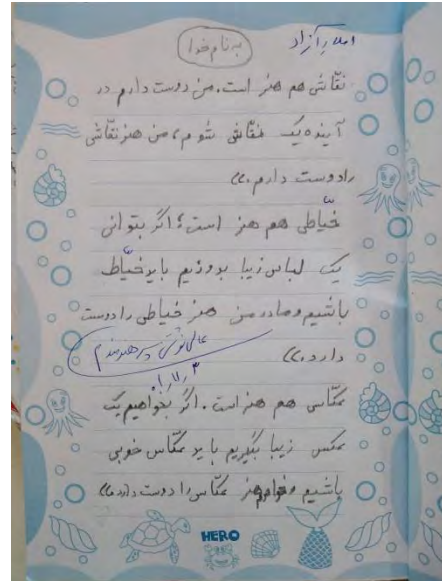 املاء آزاد
به نام خدا
نقّاشی هم هنر است. من دوست دارم در
آینده یک نقّاشی شوم، من هنر نقّاشی
را دوست دارم.
خیّاطی هم هنر است؛ اگر بتوانی
یک لباس زیبا بدوزیم باید خیّاط
باشیم و مادر من هنر خیاطی را دوست
دارد.
عالی نوشتی پسر هنرمندم
عکّاسی هم هنر است. اگر بخواهیم یک
عکس زیبا بگیریم باید عکّاس خوبی
باشیم و هنر عکّاسی را دوست دارد
HERO